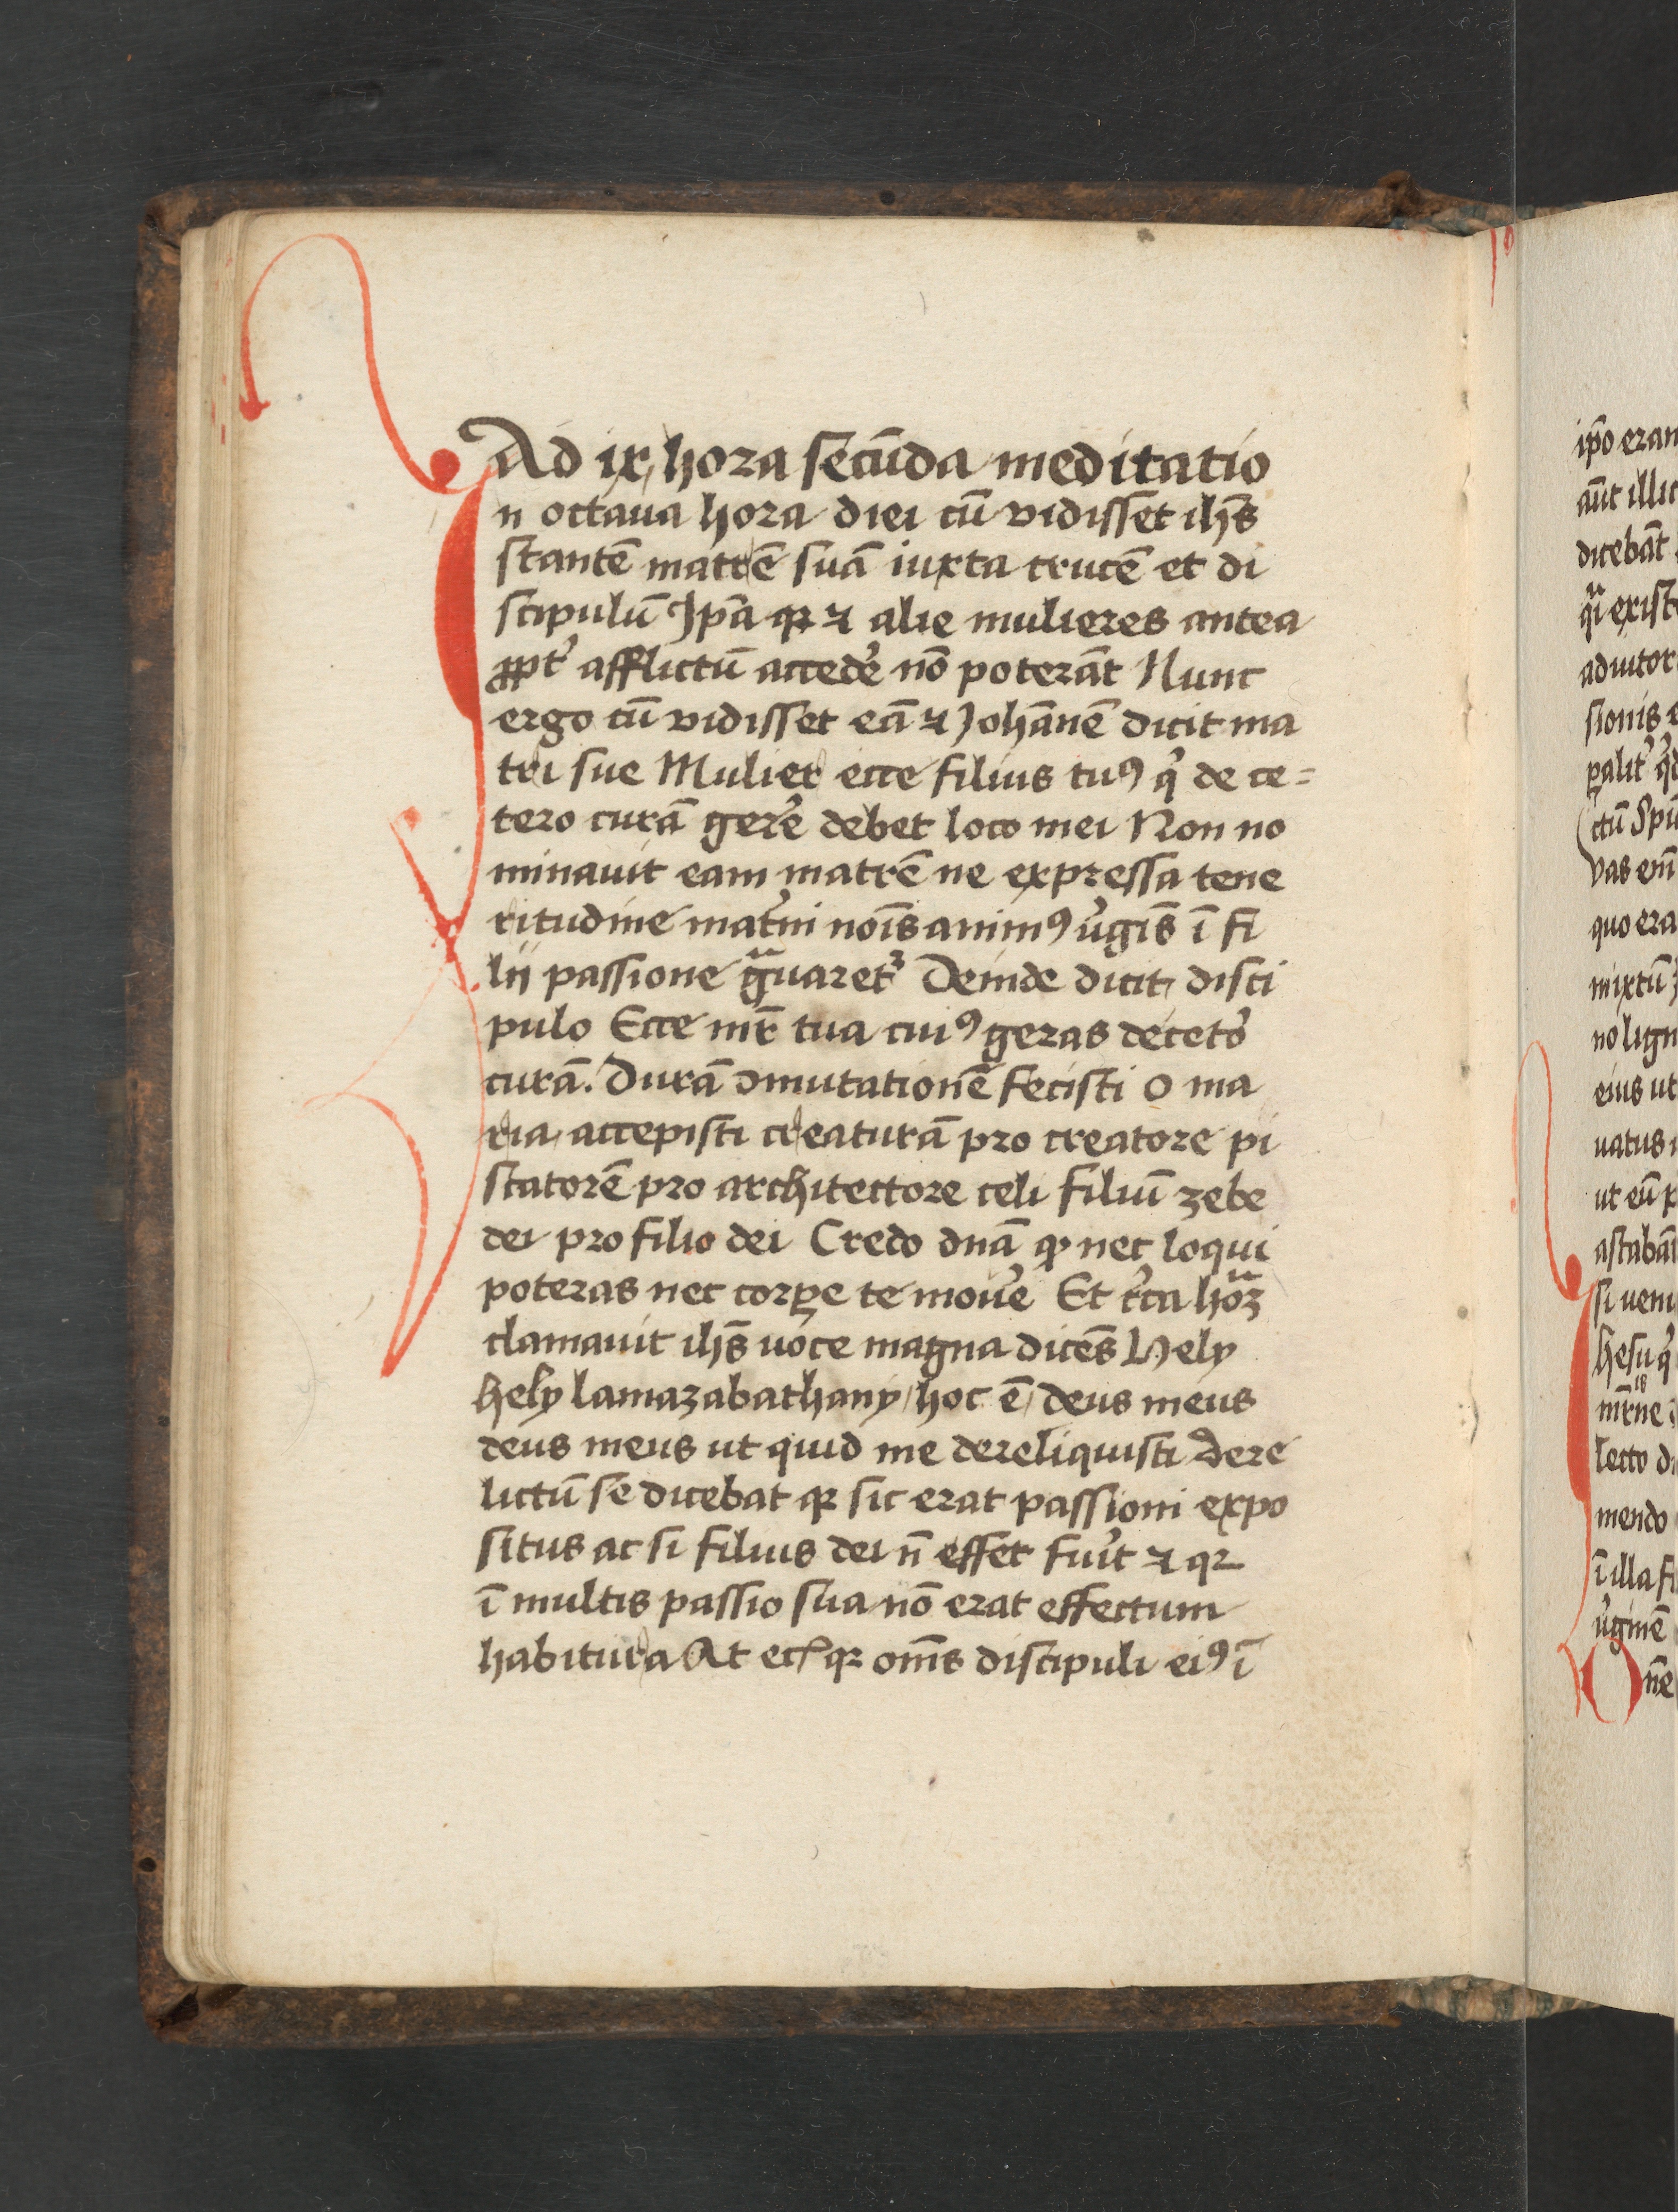 Ad ix hora secūda meditatio
In octaua hora diei cū vidisset ihs̄
stantē matrē suā iuxta crucē et di
scipulū Ip̄a qꝛ ⁊ alie mulieres antea
ꝓpt᷑ afflictū accedẽ nō poterāt Nunc
ergo cū vidisset eā ⁊ Johānē dicit ma
tri sue Mulier ecce filius tuꝯ q͛ de ce=
tero curā gerẽ debet loco mei Non no
minauit eam matrē ne expressa tene
ritudine mat͛ni noīs animꝯ v͛gīs ī fi
lii passione gᷓuaret᷑ Deinde dicit disci
pulo Ecce mr̄ tua cuiꝯ geras decet͛o
curā. Durā ꝯmutationē fecisti o ma
ria accepisti creaturā pro creatore pi
scatorē pro architectore celi filiū zebe
dei pro filio dei Credo dn̄a ꝙ nec loqui
poteras nec corꝑe te mou͛e Et c͛ca hoᷓꝫ
clamauit ihs̄ uoce magna dicēs Hely
hely lamazabathany hoc ē deus meus
deus meus ut quid me dereliquisti dere
lictū se dicebat qꝛ sic erat passioni expo
situs ac si filius dei n̄ esset fuĩt ⁊ qꝛ
ī multis passio sua nō erat effectum
habitura At qꝛ om̄s discipuli eiꝯ ī
ip̄o eran
aūt illic
dicebāt
qᷓi exist
aduitor
sionis e
ꝑalit͛ q͛d
ctū Spū
vas em̄
quo era
mixtū
no lign
eius ut
uatus
ut eū p
astabāt
si ueni
hesu q͛
mr̄ne
lecto d
mendo
ī illa fi
v͛ginē
One